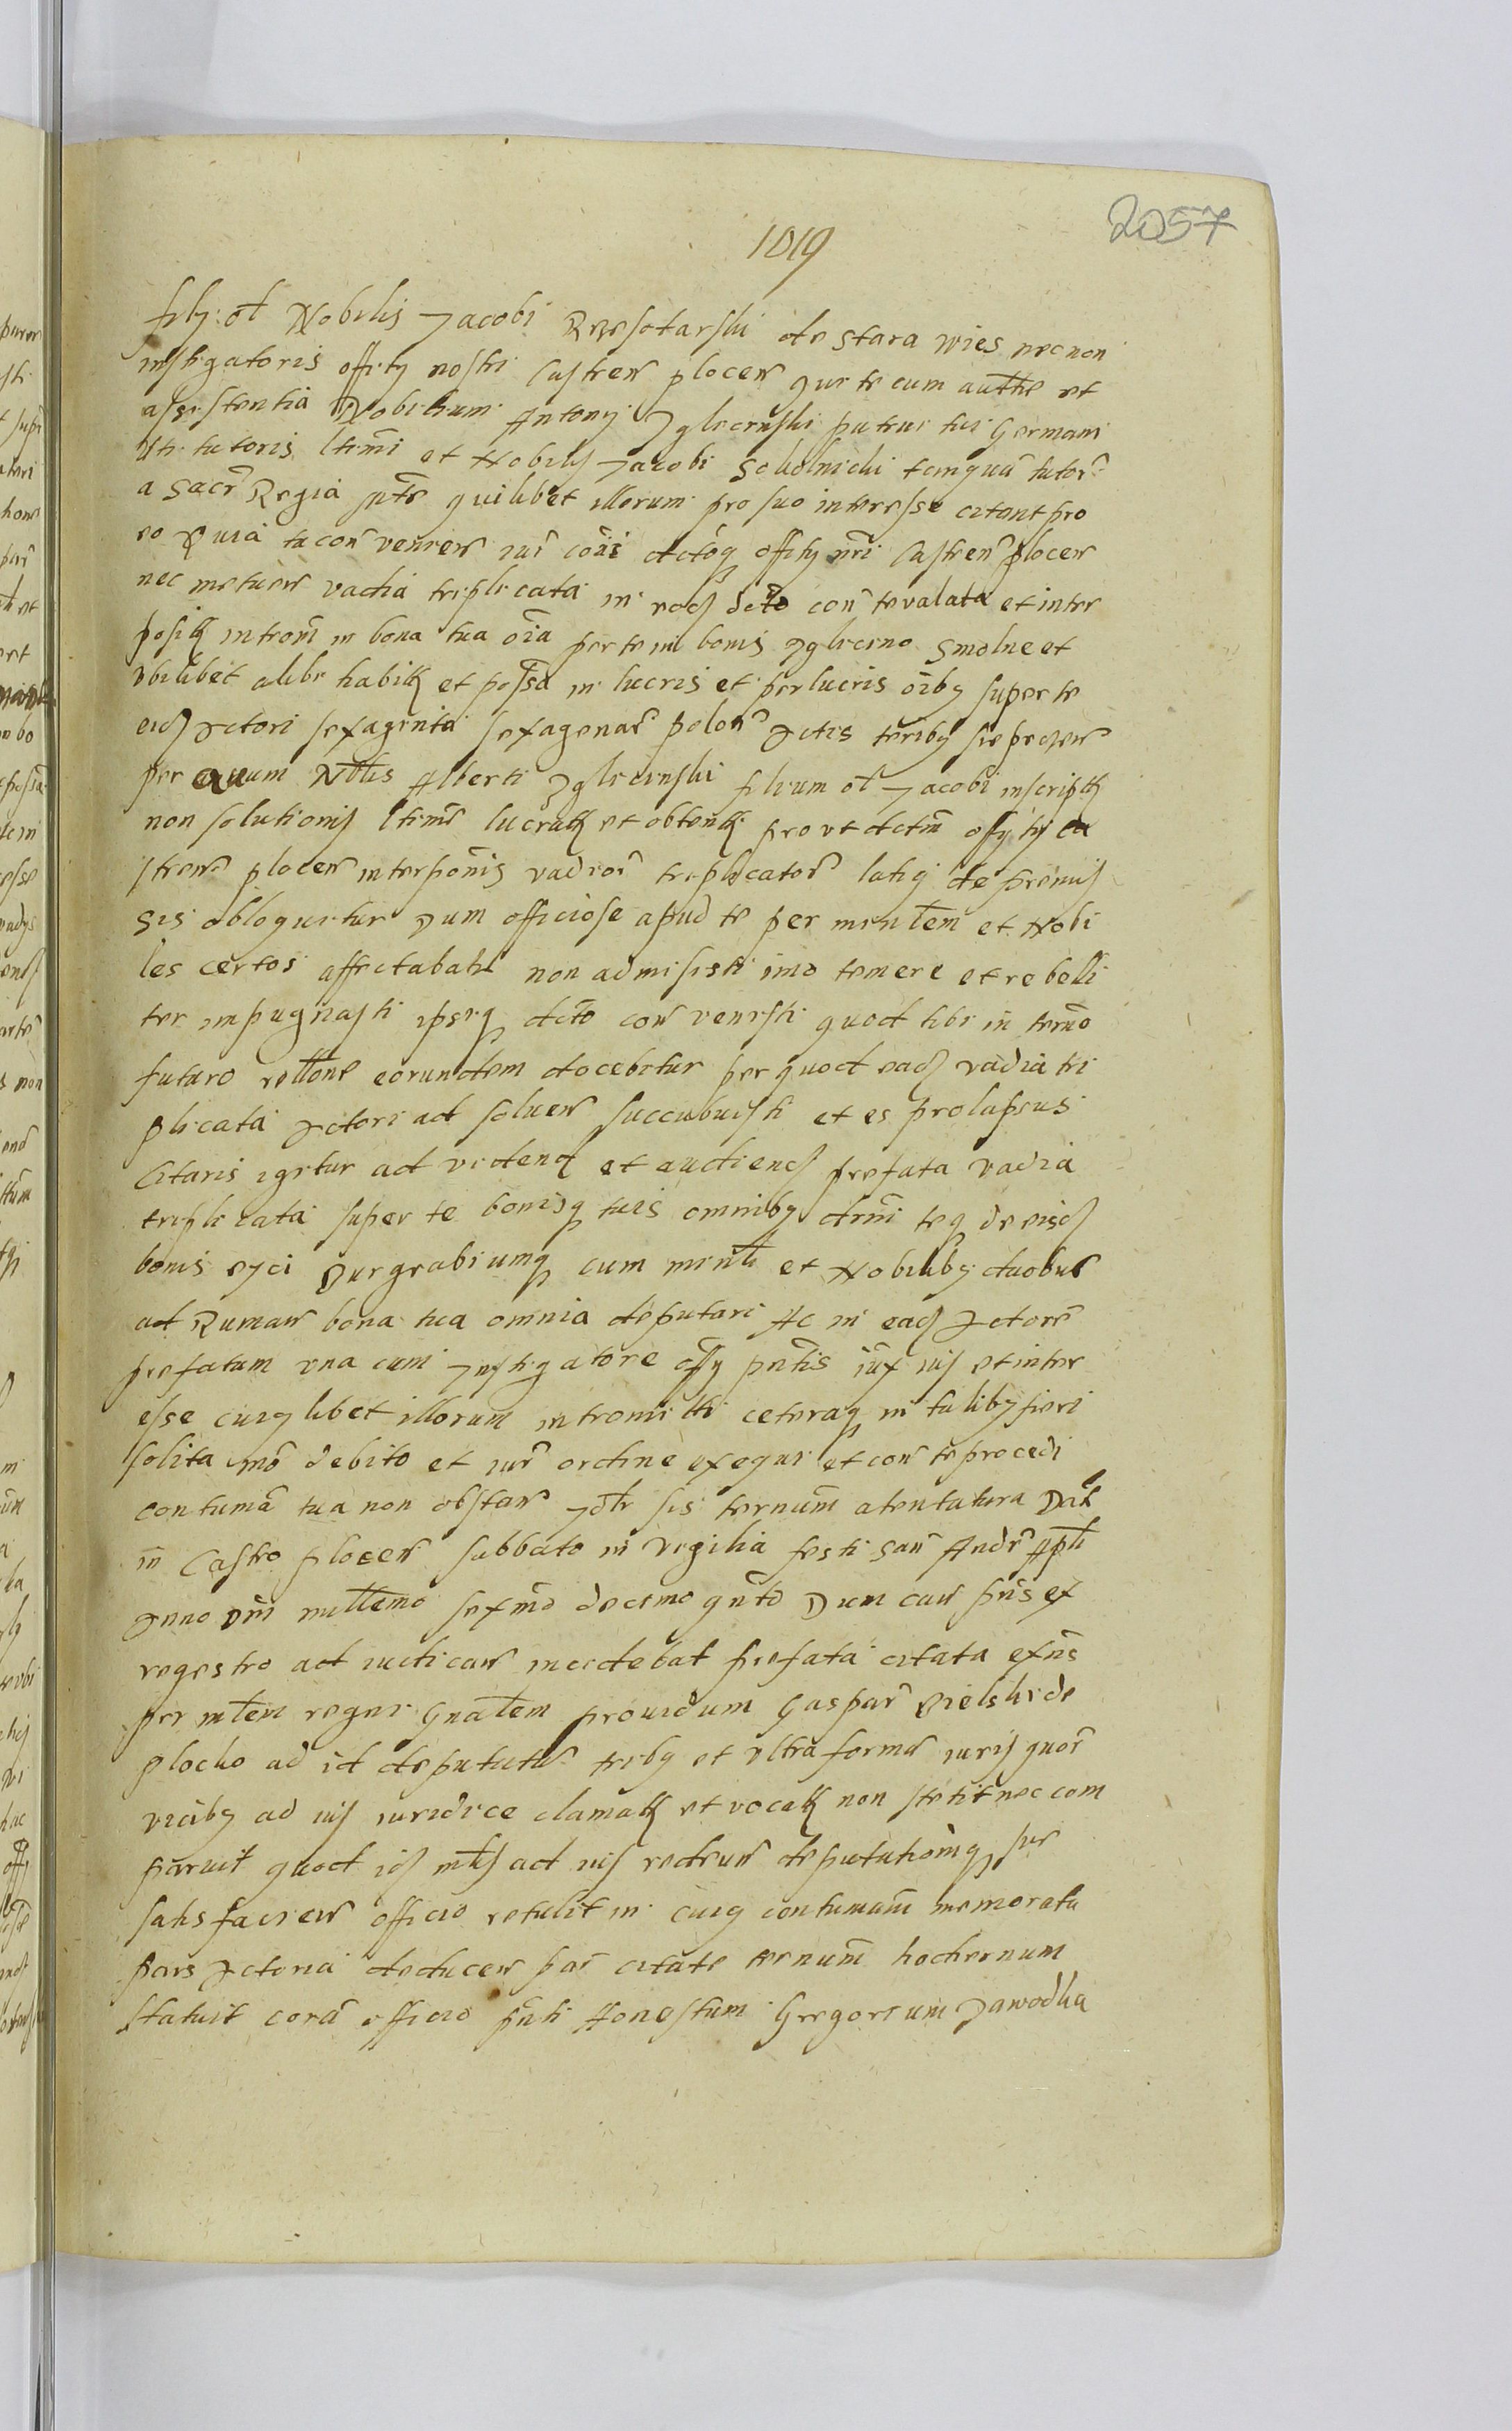 2057
1019
fily ol Nobilis Jacobi Rzesotarski de Stara wies necnon
instigatoris offity nostri Castren plocen qui te cum authe et
assistentia Nobilium Antony Zglecznski patrui tui Germani
uti tutoris ltimi et Nobilis Jacobi Sokolnicki tanquam tutor
a Sacr Regia mte quilibet illorum pro suo interesse citant pro
eo Quia tu con venien iuri coi dctoq offity nri Castren plocen
nec metuen vadia triplicata in eod dcto con te valata et inter
posit introm in bona tua oia per te in bonis Zgleczno Smolne et
ubilibet alibi habit et possa in lucris et perlucris oiby super te
eid Actori sexaginta sexagenar polon Actis teriby sieprczen
per avum Nblis Alberti Zglecznski filium ol Jacobi inscript
non solutionis ltime lucrat et obtent prout dctm offity ca
stren plocen interponis vadior triplicator latiq de premis
sis obloquitur Dum officiose apud te per minlem et Nobi
les certos affectabatr non admisisti imo temere et rebelli
ter impugnasti ipseq dcto con venisti quod tibi in termo
futuro rellone eorundem docebitur per quod ead vadia tri
plicata Actori ad soluen succubuisti et es prolapsus
Citaris igitur ad vidend et audiend prefata vadia
triplicata super te bonisq tuis omniby drni teq de eisd
bonis eyci Burgrabiumq cum minli et Nobiliby duobus
ad Ruman bona tua omnia deputari Ac in ead Actore
prefatum una cum Instigatore offy pntis iux ius et inter
esse cuiq libet illorum intromitti ceteraq in taliby fieri
solita mo debito et iur ordine exequi et con te procedi
contuma tua non obstan Jdtr sis ternum atentatura Dat
in Castro plocen sabbato in vigilia festi San Andr Apli
Anno Dni millemo sexmo decimo qnto Dum cau pns ex
regestro ad iudican incidebat prefata citata exns
per mlem regni Gnalem providum Gaspar Bielski de
plocko ad id deputatu triby et ultra forma iuris quor
viciby ad ius iuridice clamat et vocat non stetit nec com
paruit quod id mlis ad ius redeun deputationiq sue
satisfacien officio retulit in cuiq contumam memorata
pars Actoria deducen par citate ternum hodiernum
statuit cora officio pnti Honestum Gregorium Zawodka